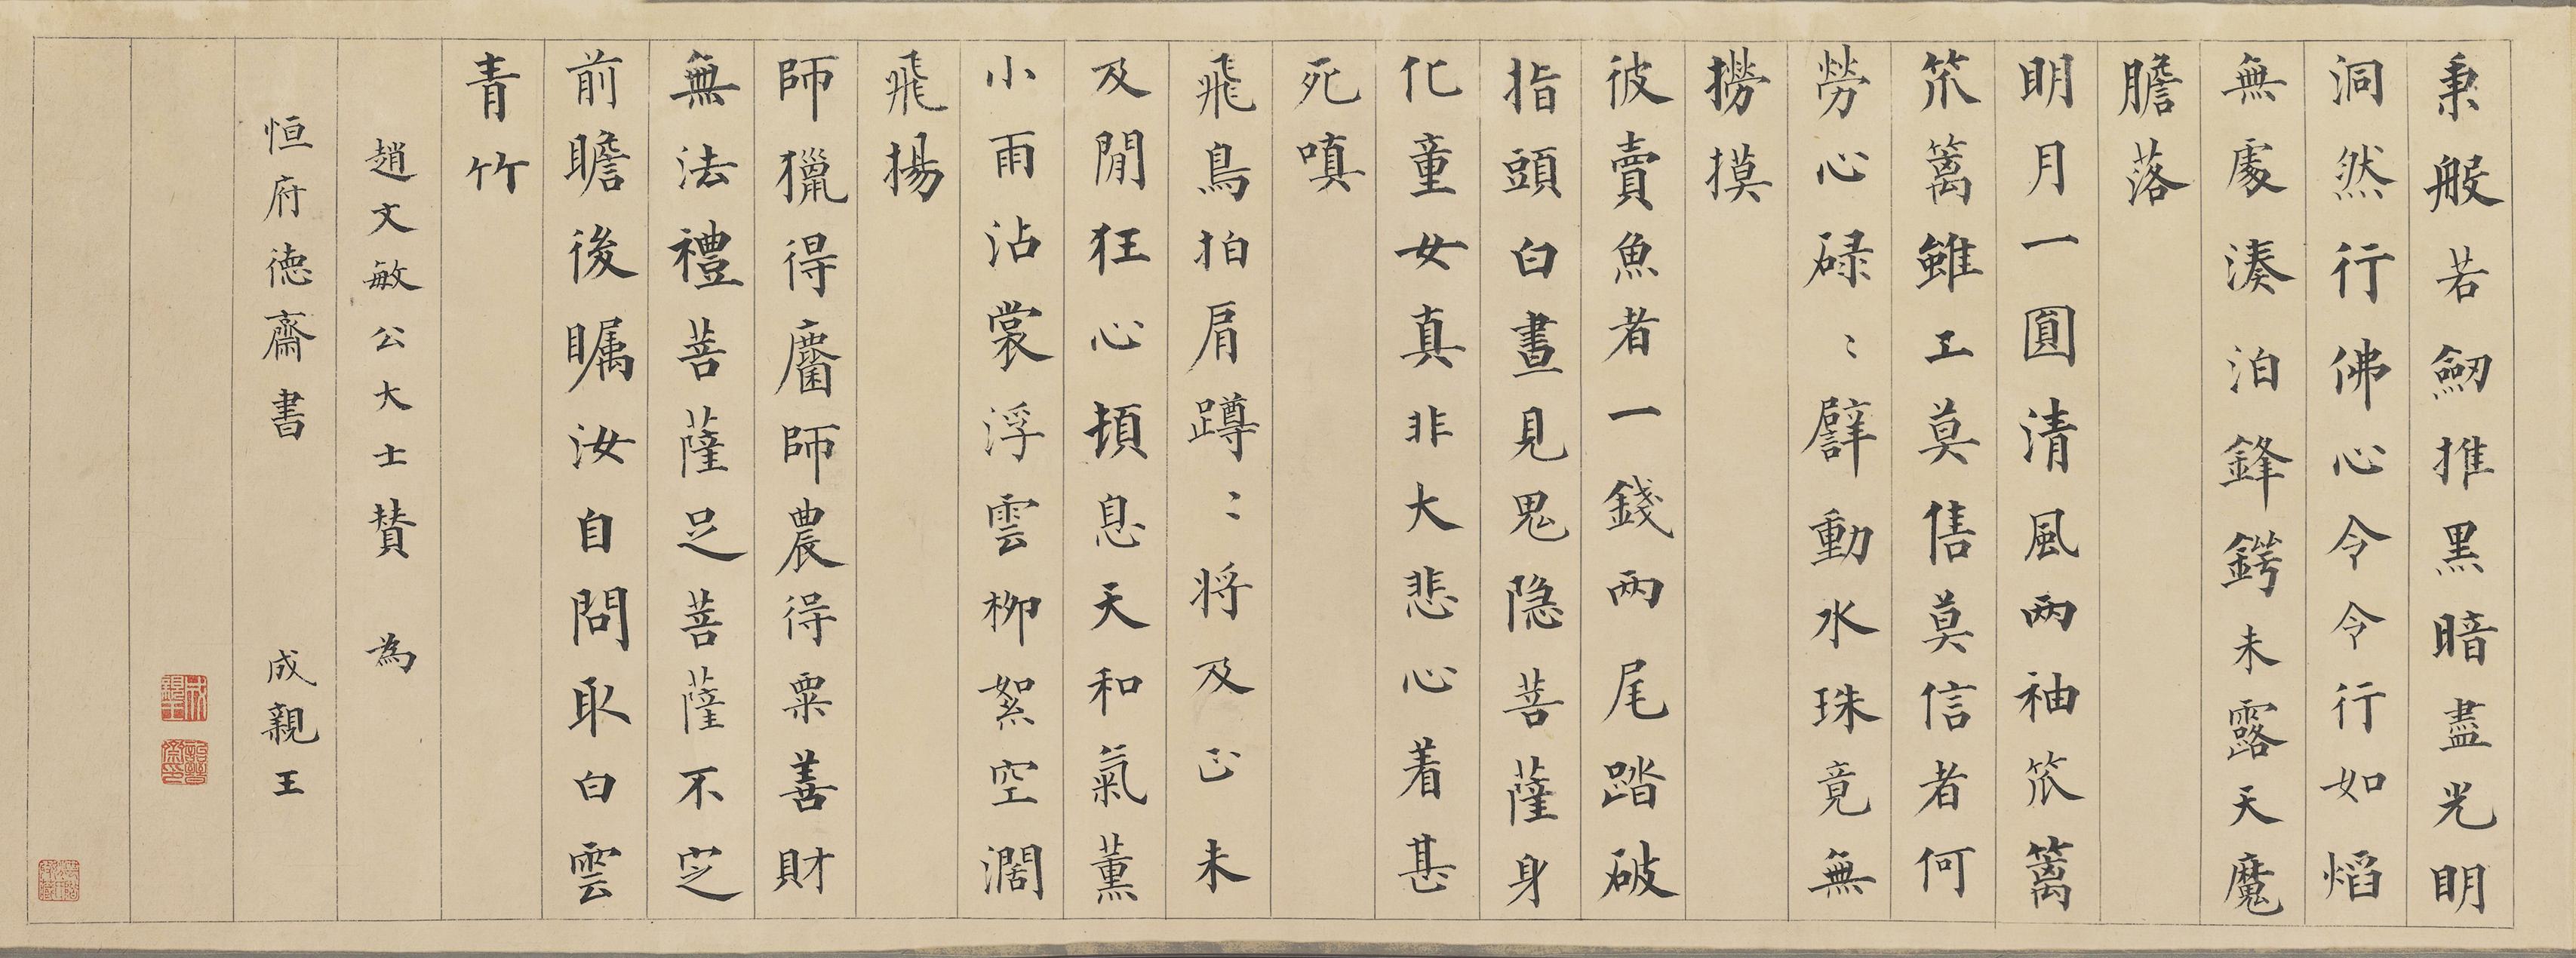 秉般若劒推黑暗盡光明
洞然行佛心令令行如熖
無處湊泊鋒鍔未露天魔
膽落
明月一圓清風兩袖笊篱
笊篱雖工莫售莫信者何
勞心碌〻劈動水珠竟無
撈摸
彼賣魚者一錢兩尾踏破
指頭白晝見鬼隐菩薩身
化童女真非大悲心着甚
死嗔
飛鳥拍肩蹲〻将及已未
及閒狂心頓息天和氣薰
小雨沾裳浮雲柳絮空濶
飛揚
師獵得麕師農得粟善財
無法禮菩薩足菩薩不
前瞻後矚汝自問取白雲
青竹
趙文敏公大士賛 為
恒府德齋書 成親王